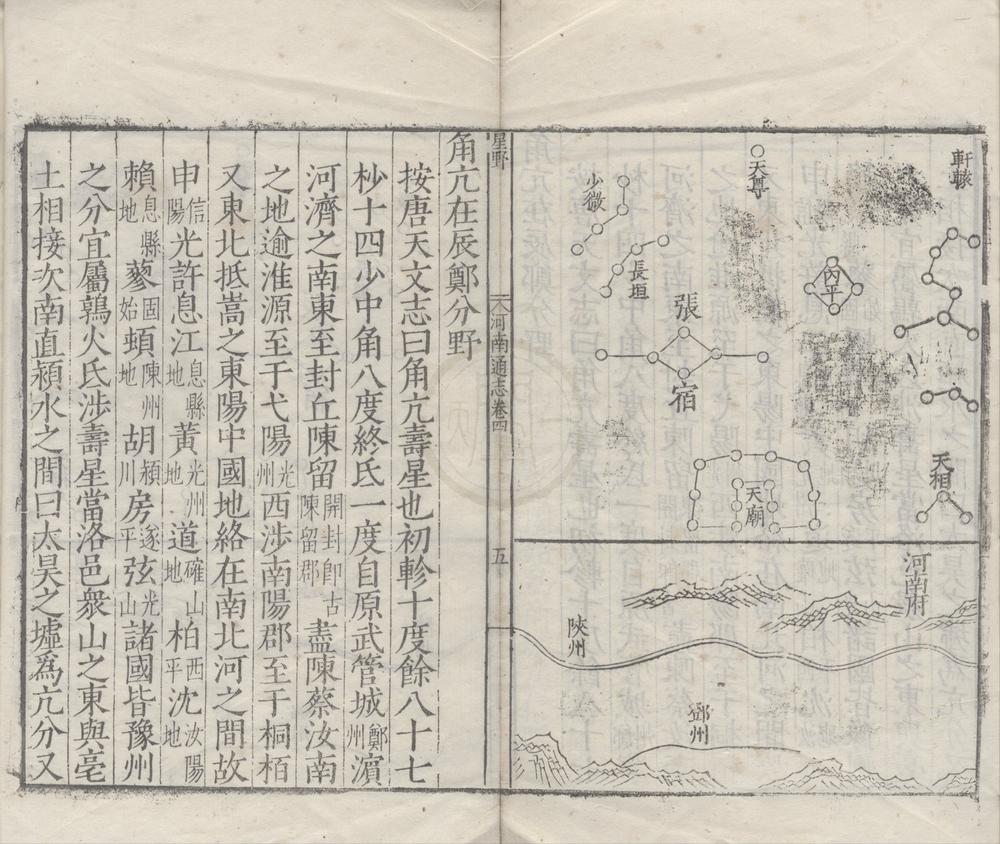 軒轅
天尊
少微
長垣
內平
張
宿
天相
天廟
河南府
陝州
鄧州
星野
河南通志卷四
五
角亢在辰鄭分野
按唐天文志曰角亢壽星也初軫十度餘八十七
杪十四少中角八度終氐一度自原武管城鄭州濵
河濟之南東至封丘陳留開封卽古陳留郡盡陳蔡汝南
之地逾淮源至于弋陽光州西涉南陽郡至于桐栢
又東北抵嵩之東陽中國地絡在南北河之間故
申信陽光許息江息縣地黃光州地道確山地柏西平沈汝陽地
賴息縣地蓼固始頓陳州地胡潁川房遂平弦光山諸國皆豫州
之分宜屬鶉火氐涉壽星當洛邑衆山之東與亳
土相接次南直潁水之間曰太昊之墟爲亢分又